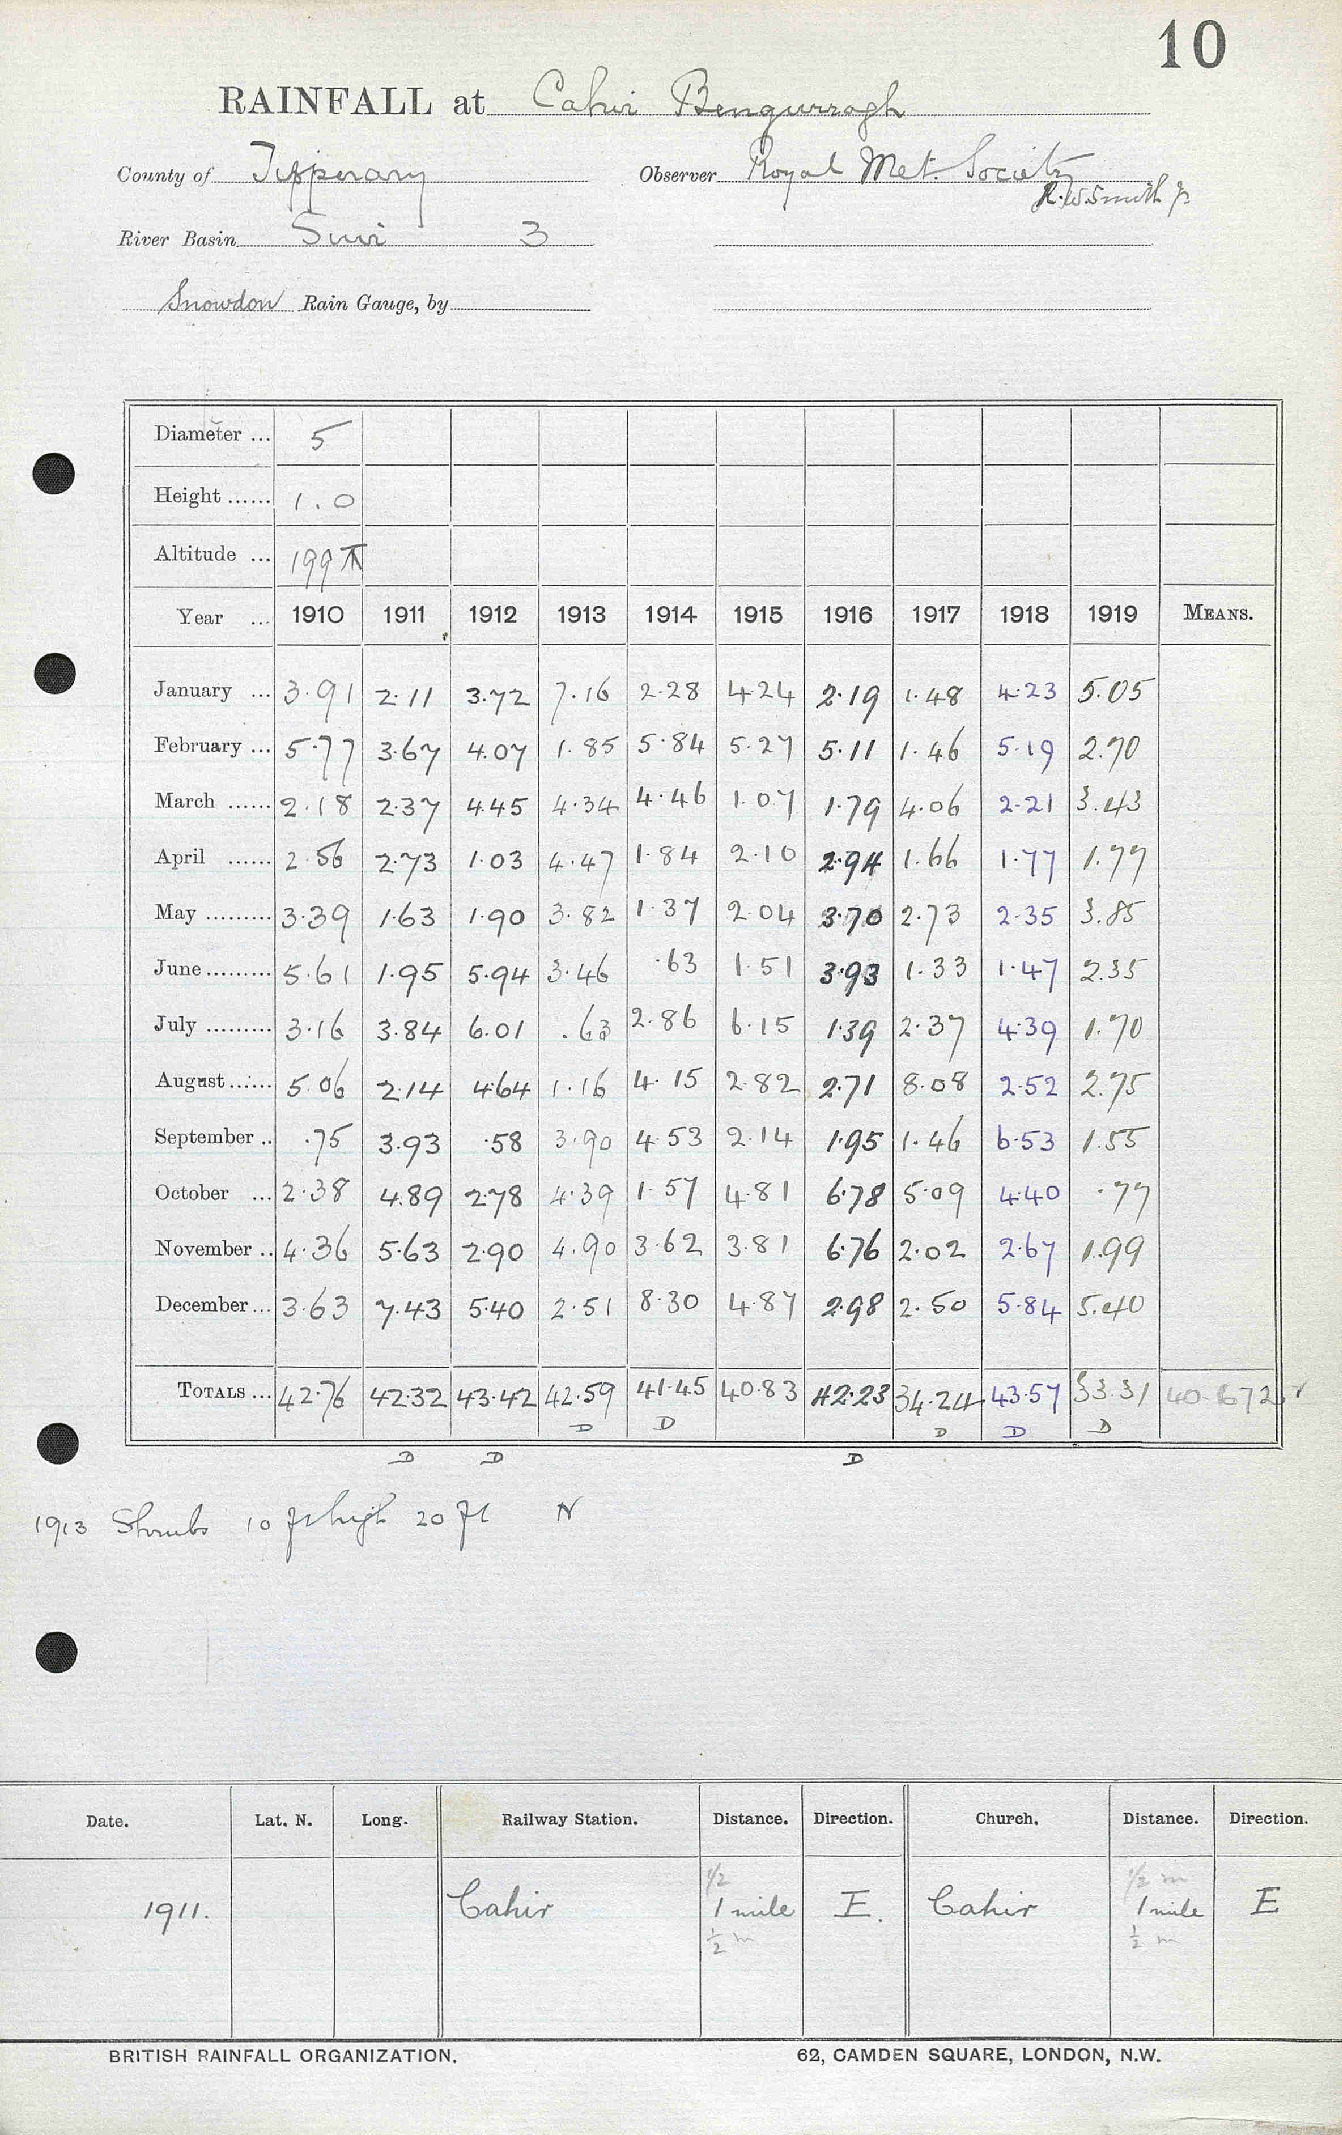 10
RAINFALL at Cahir Bengurragh
County of Tipperary Observer Royal Met. Society
R.W. Smith Jr
River Basin Suir 3
Snowdon Rain Gauge, by
Diameter ... 5
Height ...... 1.0
Altitude ... 199
Year ... 1910 1911 1912 1913 1914 1915 1916 1917 1918 1919 MEANS.
January ... 3.91 2.11 3.72 7.16 2.28 4.24 2.19 1.48 4.23 5.05
February ... 5.77 3.67 4.07 1.85 5.84 5.27 5.11 1.46 5.19 2.70
March ...... 2.18 2.37 4.45 4.34 4.46 1.07 1.79 4.06 2.21 3.43
April ...... 2.56 2.73 1.03 4.47 1.84 2.10 2.94 1.66 1.77 1.77
May ......... 3.39 1.63 1.90 3.82 1.37 2.04 3.70 2.73 2.35 3.85
June ......... 5.61 1.95 5.94 3.46 .63 1.51 3.93 1.33 1.47 2.35
July ......... 3.16 3.84 6.01 .63 2.86 6.15 1.39 2.37 4.39 1.70
August ...... 5.06 2.14 4.64 1.16 4.15 2.82 2.71 8.08 2.52 2.75
September .. .75 3.93 .58 3.90 4.53 2.14 1.95 1.46 6.53 1.55
October ... 2.38 4.89 2.78 4.39 1.57 4.81 6.78 5.09 4.40 .77
November .. 4.36 5.63 2.90 4.90 3.62 3.81 6.76 2.02 2.67 1.99
December ... 3.63 7.43 5.40 2.51 8.30 4.87 2.98 2.50 5.84 5.40
TOTALS ... 42.76 42.32 43.42 42.59 41.45 40.83 42.23 34.24 43.57 33.31 40.672
D D D D D
D D D
1913 Shrubs 10 ft high 20 ft N
Date. Lat. N. Long. Railway Station. Distance. Direction. Church. Distance. Direction.
1/2 1/2 m
1911. Cahir 1 mile E. Cahir 1 mile E
1/2 m 1/2 m
BRITISH RAINFALL ORGANIZATION. 62, CAMDEN SQUARE, LONDON, N.W.